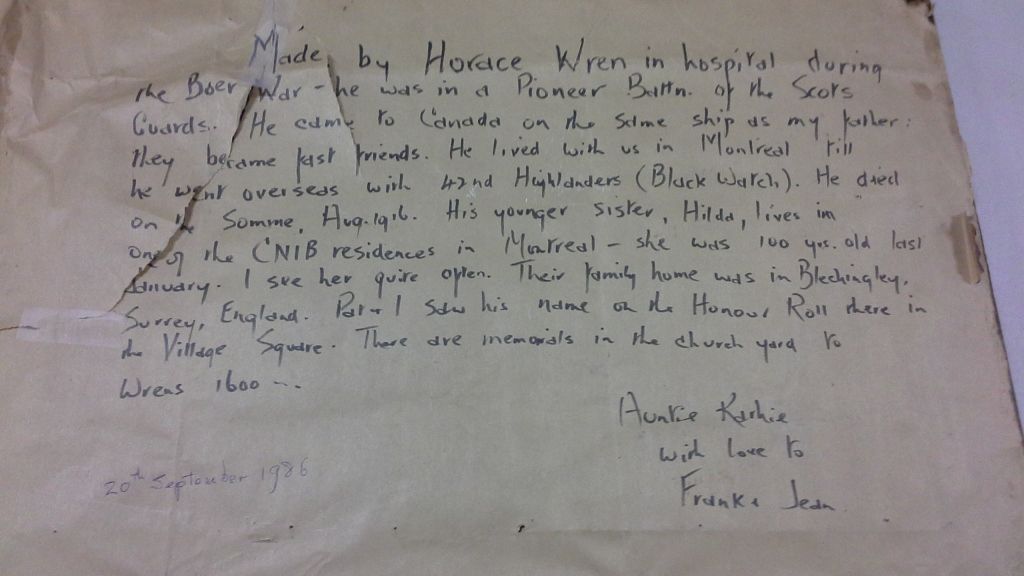 Made by Horace Wren in hospital during
the Boer War - he was in a Pioneer Battn. of the Scots
Guards. He came to Canada on the same ship as my father:
they became fast friends. He lived with us in Montreal till
he went overseas with 42nd Highlanders (Black Watch). He died
on the Somme, Aug. 1916. His younger sister, Hilda, lives in
one of the CNIB residences in Montreal - she was 100 yrs. old last
January. I see her quite often. Their family home was in Blechingley,
Surrey, England. Pat + I saw his name on the Honour Roll there in
the Village Square. There are memorials in the church yard to
Wrens 1600 ---
Auntie
with love to
Frank & Jean
20th September 1986